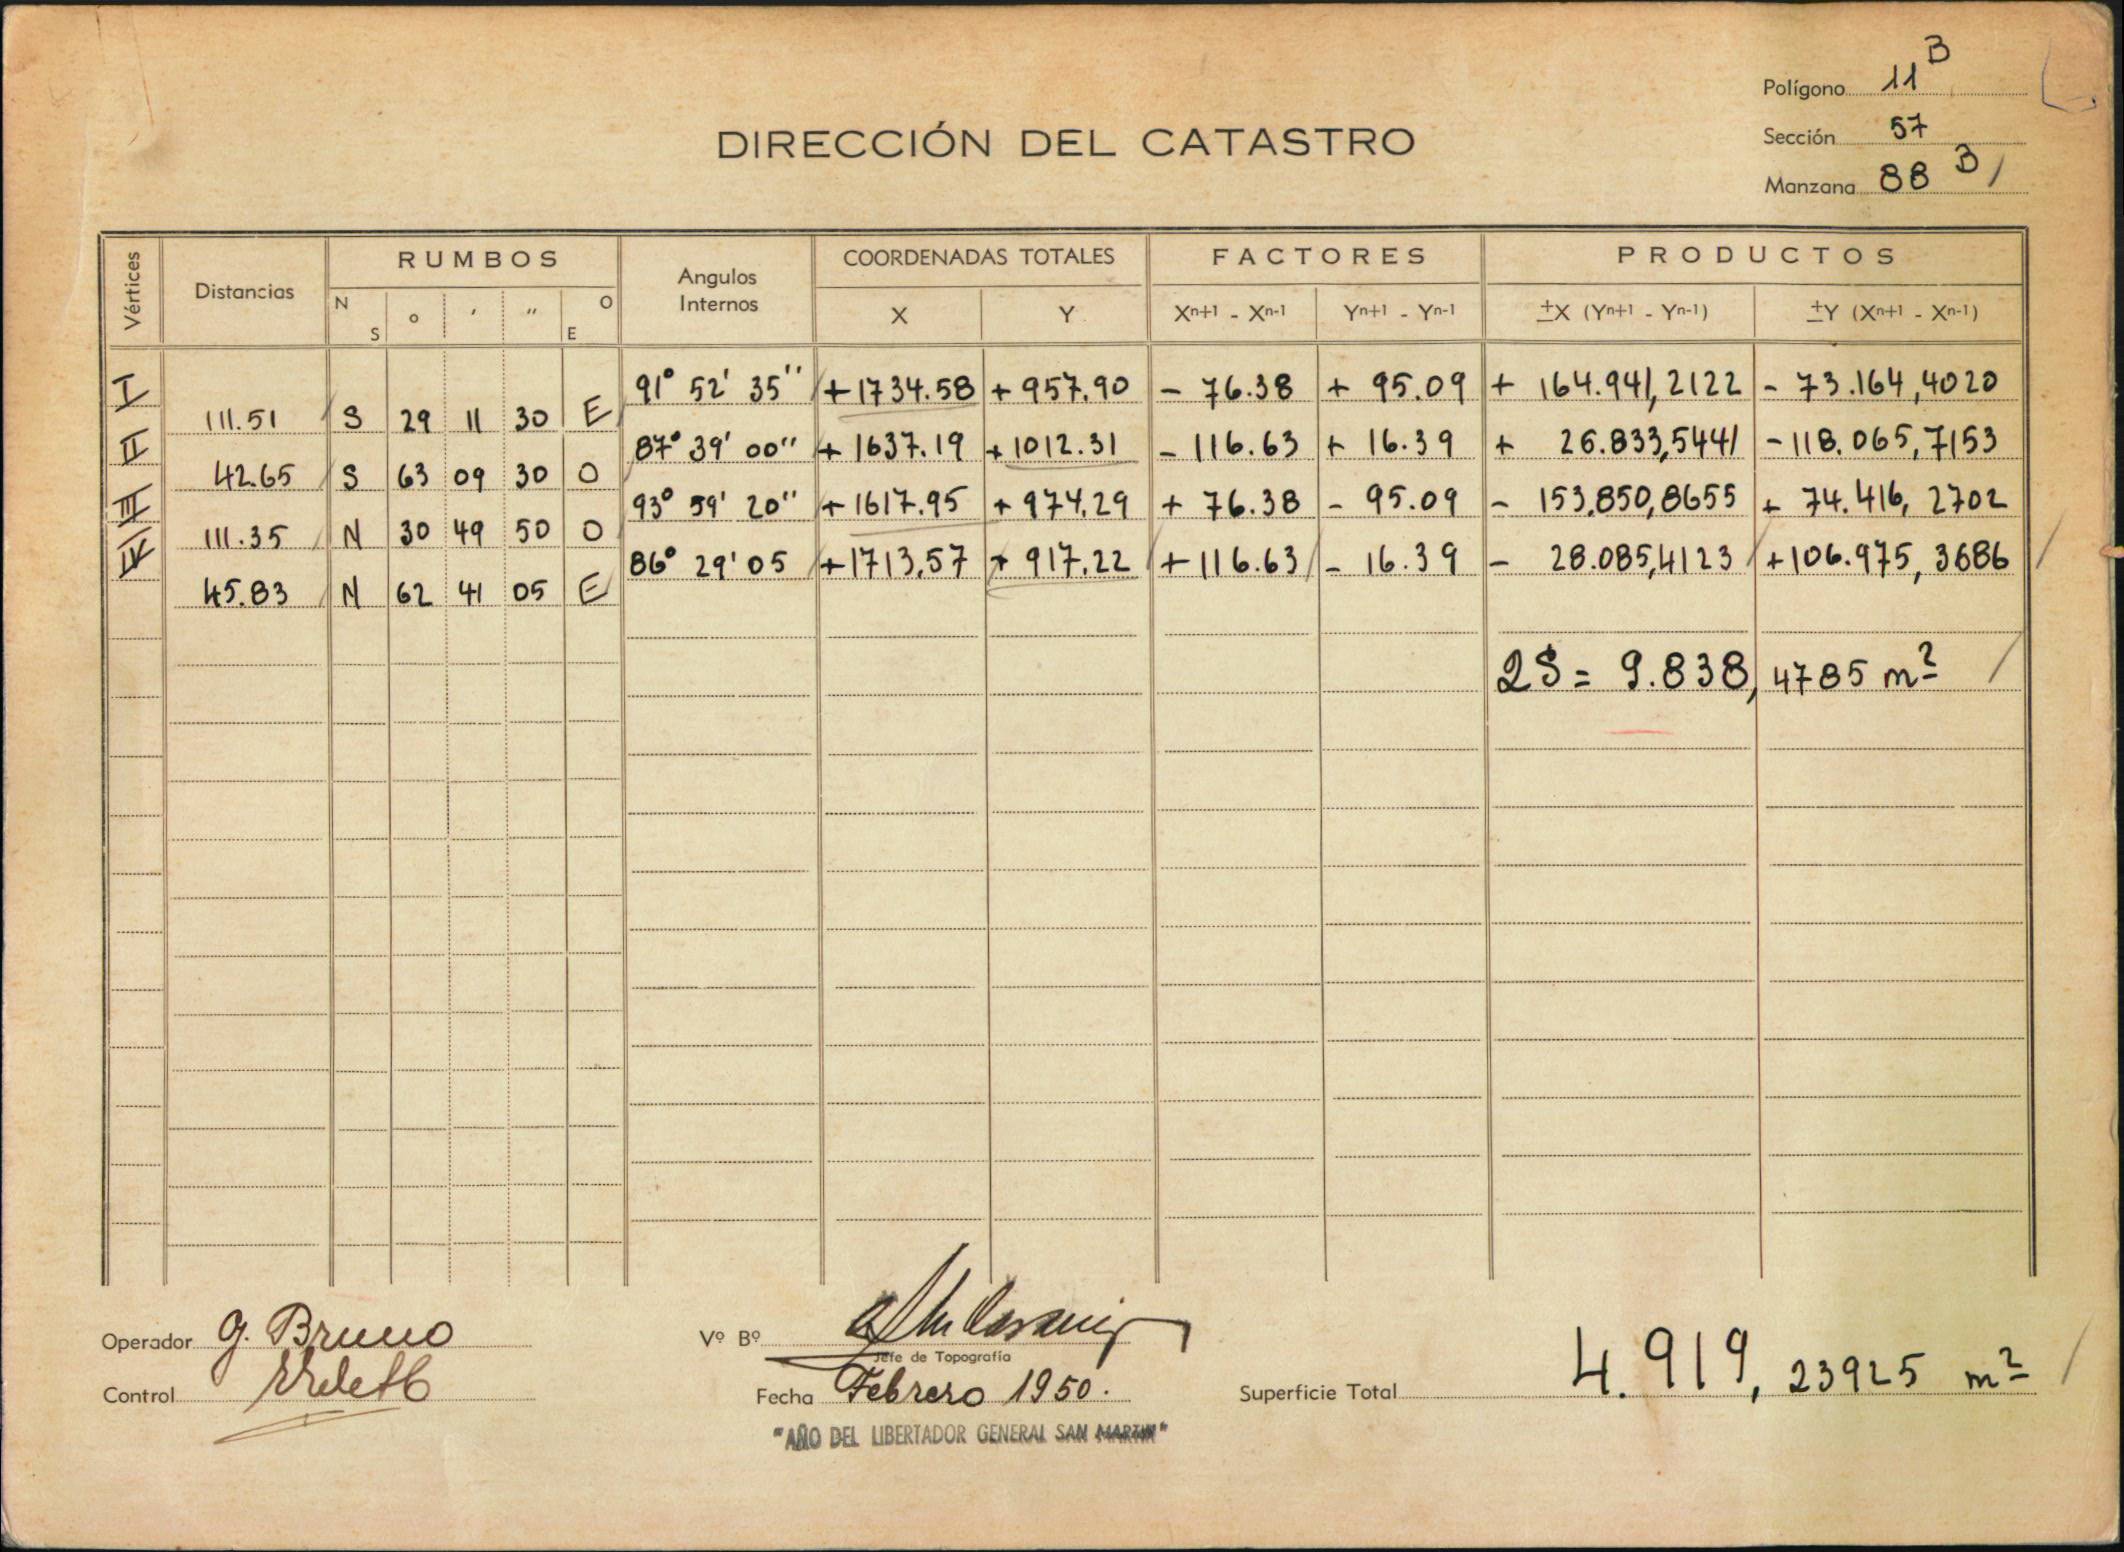 Polígono 11 B
DIRECCIÓN DEL CATASTRO
Sección 57
Manzana 88 B
Vértices Distancias RUMBOS Angulos Internos COORDENADAS TOTALES FACTORES PRODUCTOS
N S ° ′ ″ O E X Y Xn+1 - Xn-1 Yn+1 - Yn-1 ±X (Yn+1 - Yn-1) ±Y (Xn+1 - Xn-1)
I 91° 52' 35'' +1734.58 + 957.90 - 76.38 + 95.09 + 164.941,2122 - 73.164,4020
111.51 S 29 11 30 E
II 87° 39' 00'' + 1637.19 +1012.31 - 116.63 + 16.39 + 26.833,5441 -118.065,7153
42.65 S 63 09 30 O
III 93° 59' 20'' + 1617.95 + 974.29 + 76.38 - 95.09 - 153.850,8655 + 74.416,2702
111.35 N 30 49 50 O
IV 86° 29' 05 +1713,57 + 917.22 +116.63 - 16.39 - 28.085,4123 +106.975,3686
45.83 N 62 41 05 E
2S = 9.838,4785 m²
Operador G. Bruno
Vº Bº
Jefe de Topografía
Control
Fecha Febrero 1950.
Superficie Total 4.919,23925 m²
"AÑO DEL LIBERTADOR GENERAL SAN MARTIN"